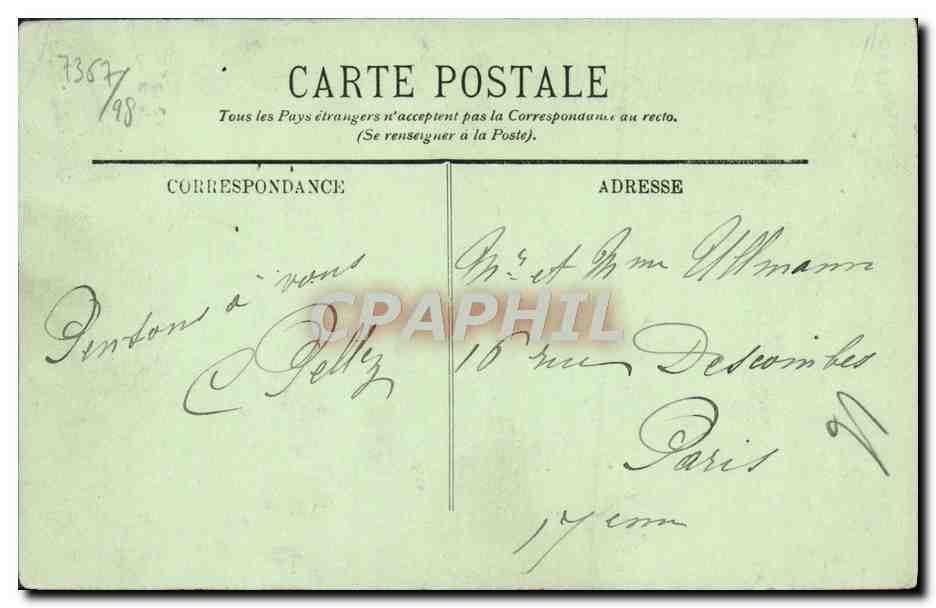 7367/98
CARTE POSTALE
Tous les Pays étrangers n'acceptent pas la Correspondance au recto.
(Se renseigner à la Poste).
CORRESPONDANCE
Pensons à vous
C Pellez
ADRESSE
Mr et Mme Ullmann
16 rue Descombes
Paris
17eme
CPAPHIL